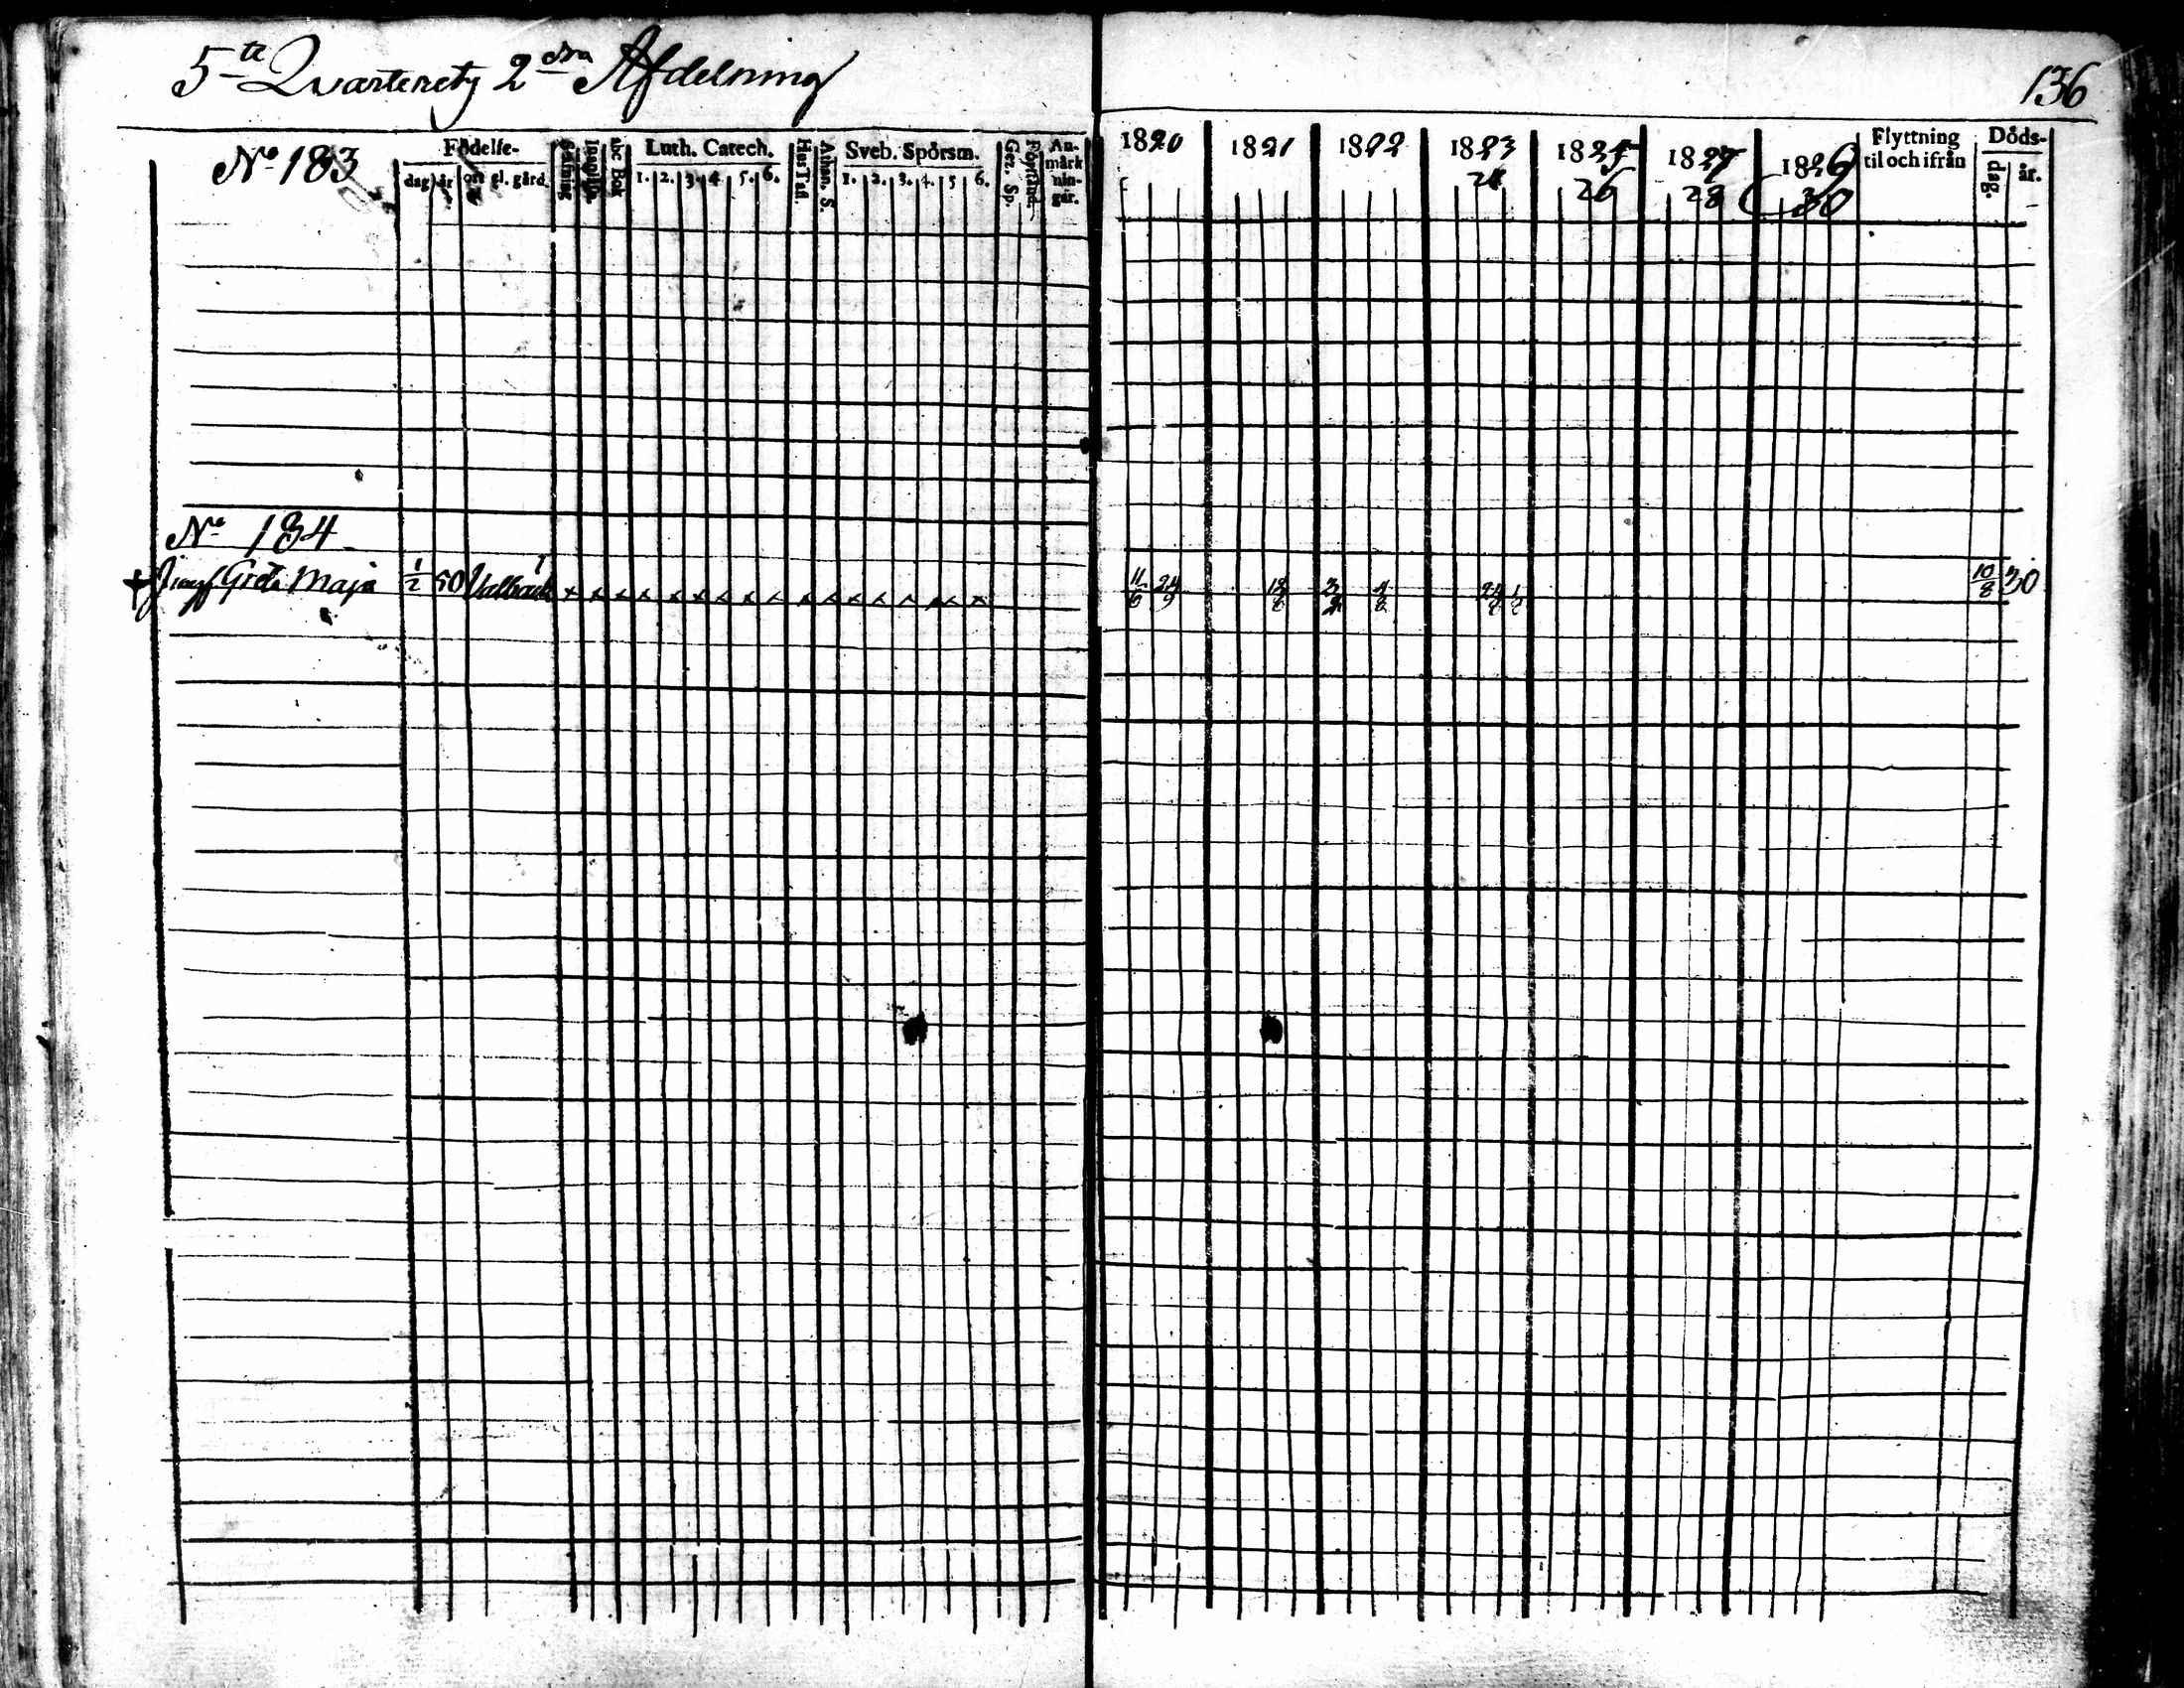 5te Qvarterets 2dra Afdelning
136
No 183
Födelse-
dag år ort gl. gård.
Abc Bok
Luth. Catech.
1. 2. 3. 4. 5. 6.
Hus Tafl.
Athan. S.
Sveb. Spörsm.
1. 2. 3. 4. 5 6.
Ger. Sp.
Förstånd
An-märk-nin-gar.
1820 1821 1822 1823 24 1825 26 1827 28 1829 30
Flyttning til och ifrån
Döds-
dag. år.
No 184
+ Jungf Greta Maja 1/2 50 x x x x x x x x x x x x x x x x x 11/6 24/9 10/8 30